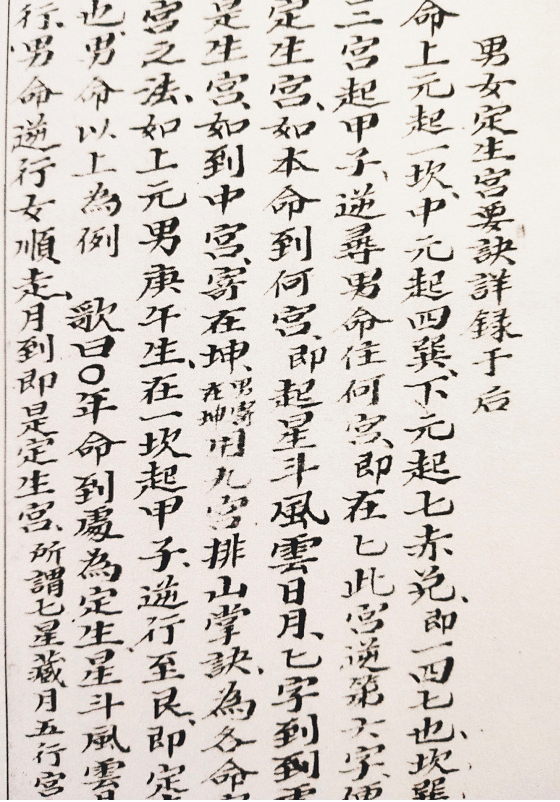 男女定生宮要訣詳録于后
命上元起一坎、中元起四巽、下元起七赤兌、即一四七也、坎巽
三宮起甲子、逆尋男命住何宮、即在匕此宮逆第六字、便
定生宮、如本命到何宮、即起星斗風雲日月、匕字到到
是生宮、如到中宮、寄在坤、男寄在坤用九宮排山掌訣、為各命
宮之法、如上元男庚午生、在一坎起甲子、逆行至艮、即定
也、男命以上為例　歌曰〇年命到處為定生、星斗風雲
行、男命逆行女順走、月到即是定生宮、所謂七星藏月五行宮